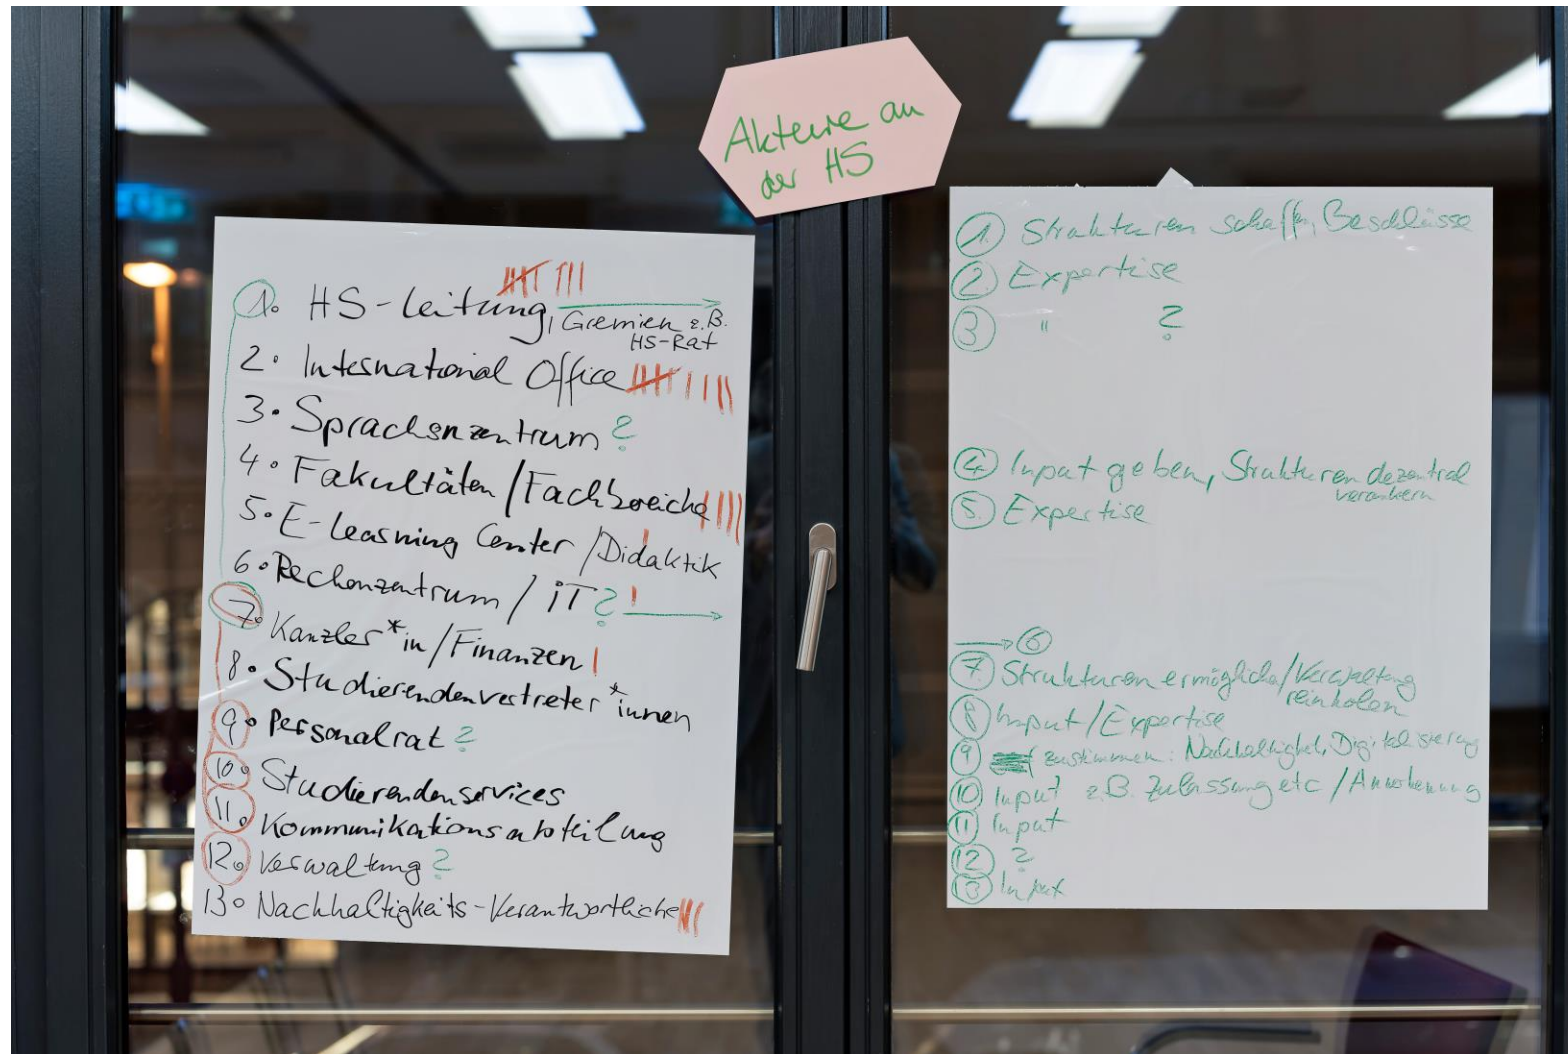 Akteure an
der HS
1. HS-Leitung, Gremien z.B.
HS-Rat
2. International Office
3. Sprachenzentrum ?
4. Fakultäten/Fachbereiche
5. E-Learning Center/Didaktik
6. Rechenzentrum/iT ?
7. Kanzler*in/Finanzen
8. Studierendenvertreter*innen
9. Personalrat ?
10. Studierendenservices
11. Kommunikationsabteilung
12. Verwaltung ?
13. Nachhaltigkeits-Verantwortliche
1. Strukturen schaffen, Beschlüsse
2. Expertise
3 " ?
4. Input geben, Strukturen dezentral
verankern
5. Expertise
→ 6
7 Strukturen ermögliche/Verwaltung
reinholen
8 Input/Expertise
9 zustimmen: Nachhaltigkeit, Digitalisierung
10 Input z.B. Zulassung etc/Anerkennung
11 Input
12 ?
13 Input